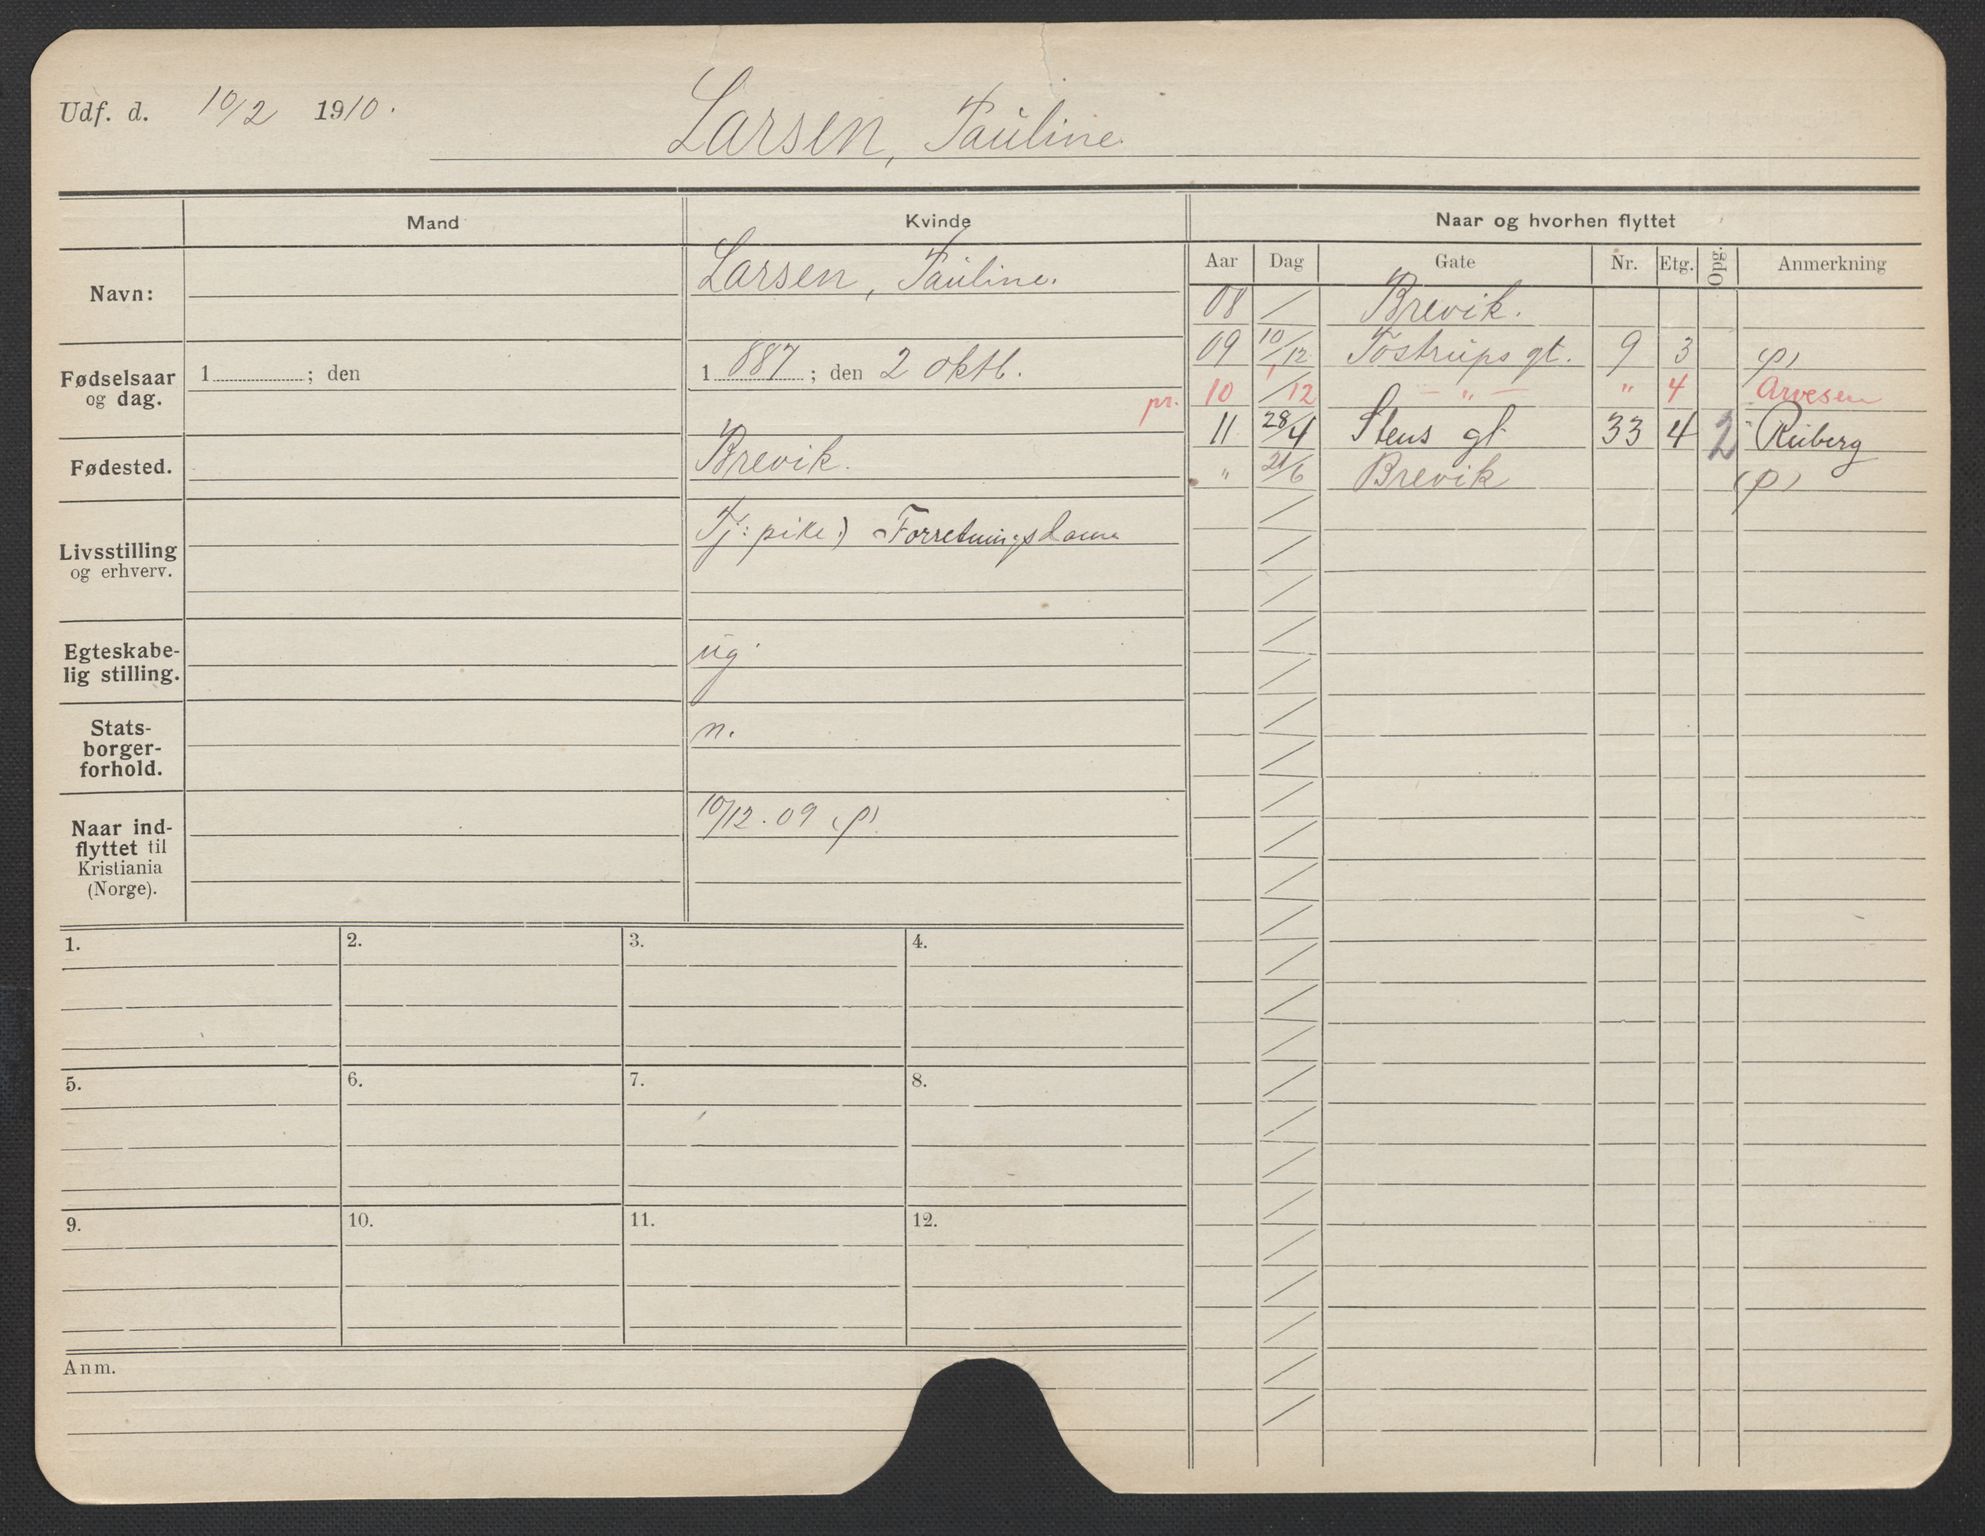 Udf. d. 10/2 1910.
Larsen, Pauline.
Mand
Kvinde
Naar og hvorhen flyttet
Aar Dag Gate Nr. Etg. Opg. Anmerkning
Navn:
Larsen, Pauline.
Fødselsaar
og dag.
1 ; den
1 887 ; den 2 oktb.
Fødested.
Brevik.
Livsstilling
og erhverv.
Tj: pike) Forretningsdame
Egteskabe-
lig stilling.
ug
Stats-
borger-
forhold.
n.
Naar ind-
flyttet til
Kristiania
(Norge).
10/12. 09 (p)
08 / Brevik.
09 10/12 Tostrups gt. 9 3 (p)
pr. 10 /12 — „ — " 4 Arvesen
11 28/4 Stens gt 33 4 2 Ruberg
" 21/6 Brevik (p)
1. 2. 3. 4.
5. 6. 7. 8.
9. 10. 11. 12.
Anm.